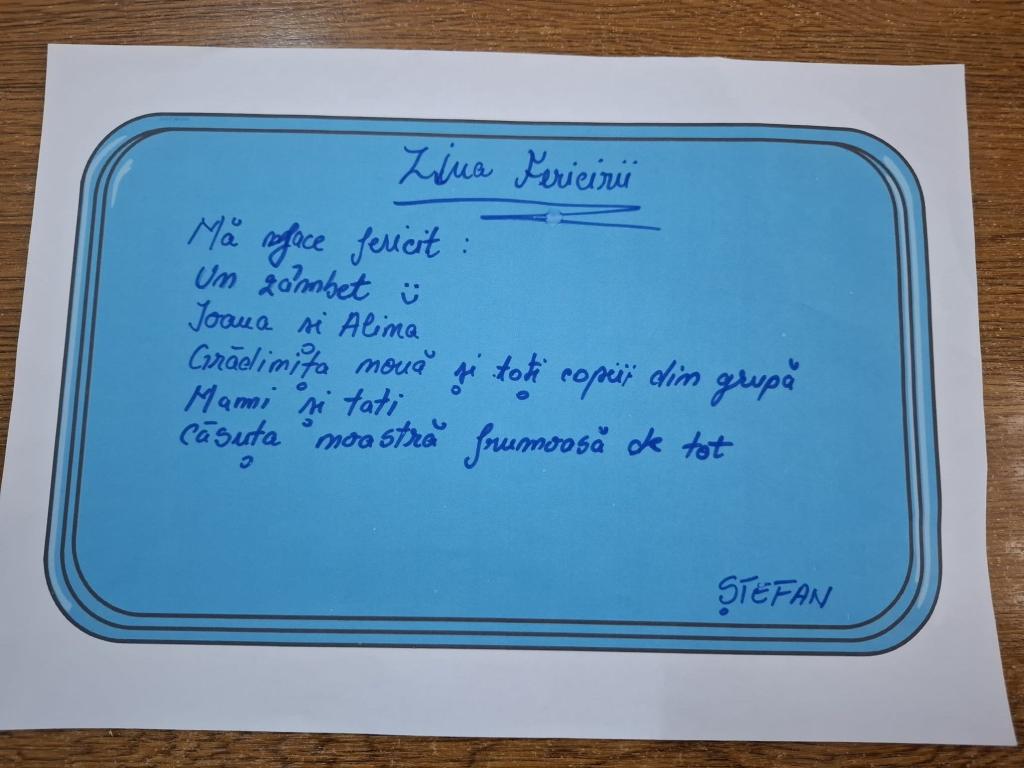 Ziua Fericirii
Mă face fericit :
Un zâmbet :)
Ioana și Alina
Grădinița nouă și toți copiii din grupă
Mami și tati
Căsuța noastră frumoasă de tot
ȘTEFAN